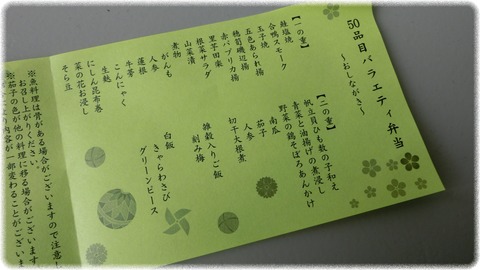 50品目バラエティ弁当
～おしながき～
【一の重】
鮭塩焼
合鴨スモーク
玉子焼
五色あられ揚
穂筍磯辺揚
赤パプリカ揚
里芋田楽
根菜サラダ
山菜漬
煮物
がんも
人参
蓮根
牛蒡
こんにゃく
生麩
にしん昆布巻
菜の花お浸し
そら豆
【二の重】
帆立貝ひも数の子和え
青菜と油揚げの煮浸し
野菜の鶏そぼろあんかけ
南瓜
茄子
人参
切干大根煮
雑穀入りご飯
刻み梅
白飯
きゃらわさび
グリーンピース
※魚料理は骨がある場合がございますので注意し
お召し上がりください。
※茄子の色が他の料理に移る場合がございます
内容が一部変わることがございま